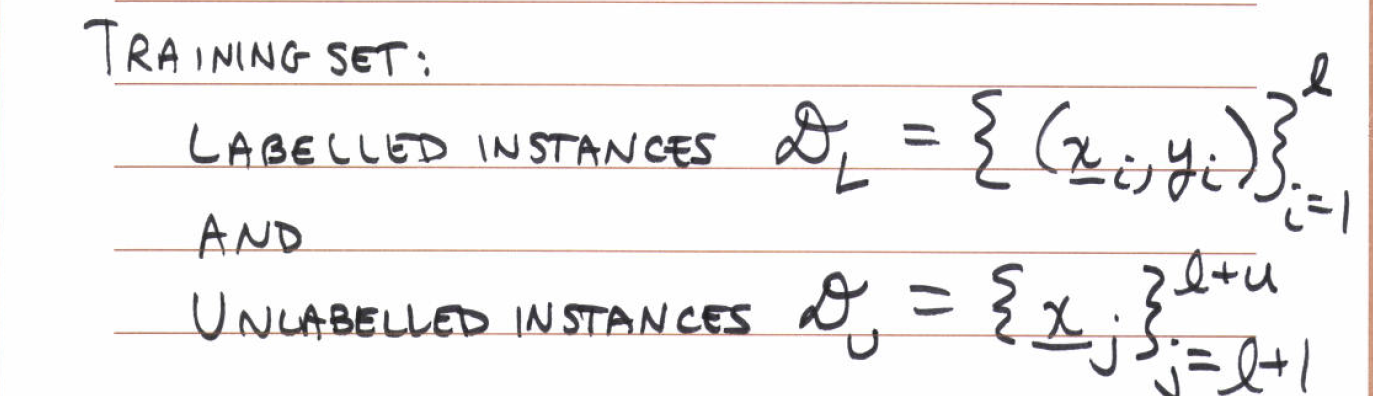 TRAINING SET:
LABELLED INSTANCES 𝒟_L = { (x̲_i, y_i) }_{i=1}^{ℓ}
AND
UNLABELLED INSTANCES 𝒟_U = { x̲_j }_{j=ℓ+1}^{ℓ+u}